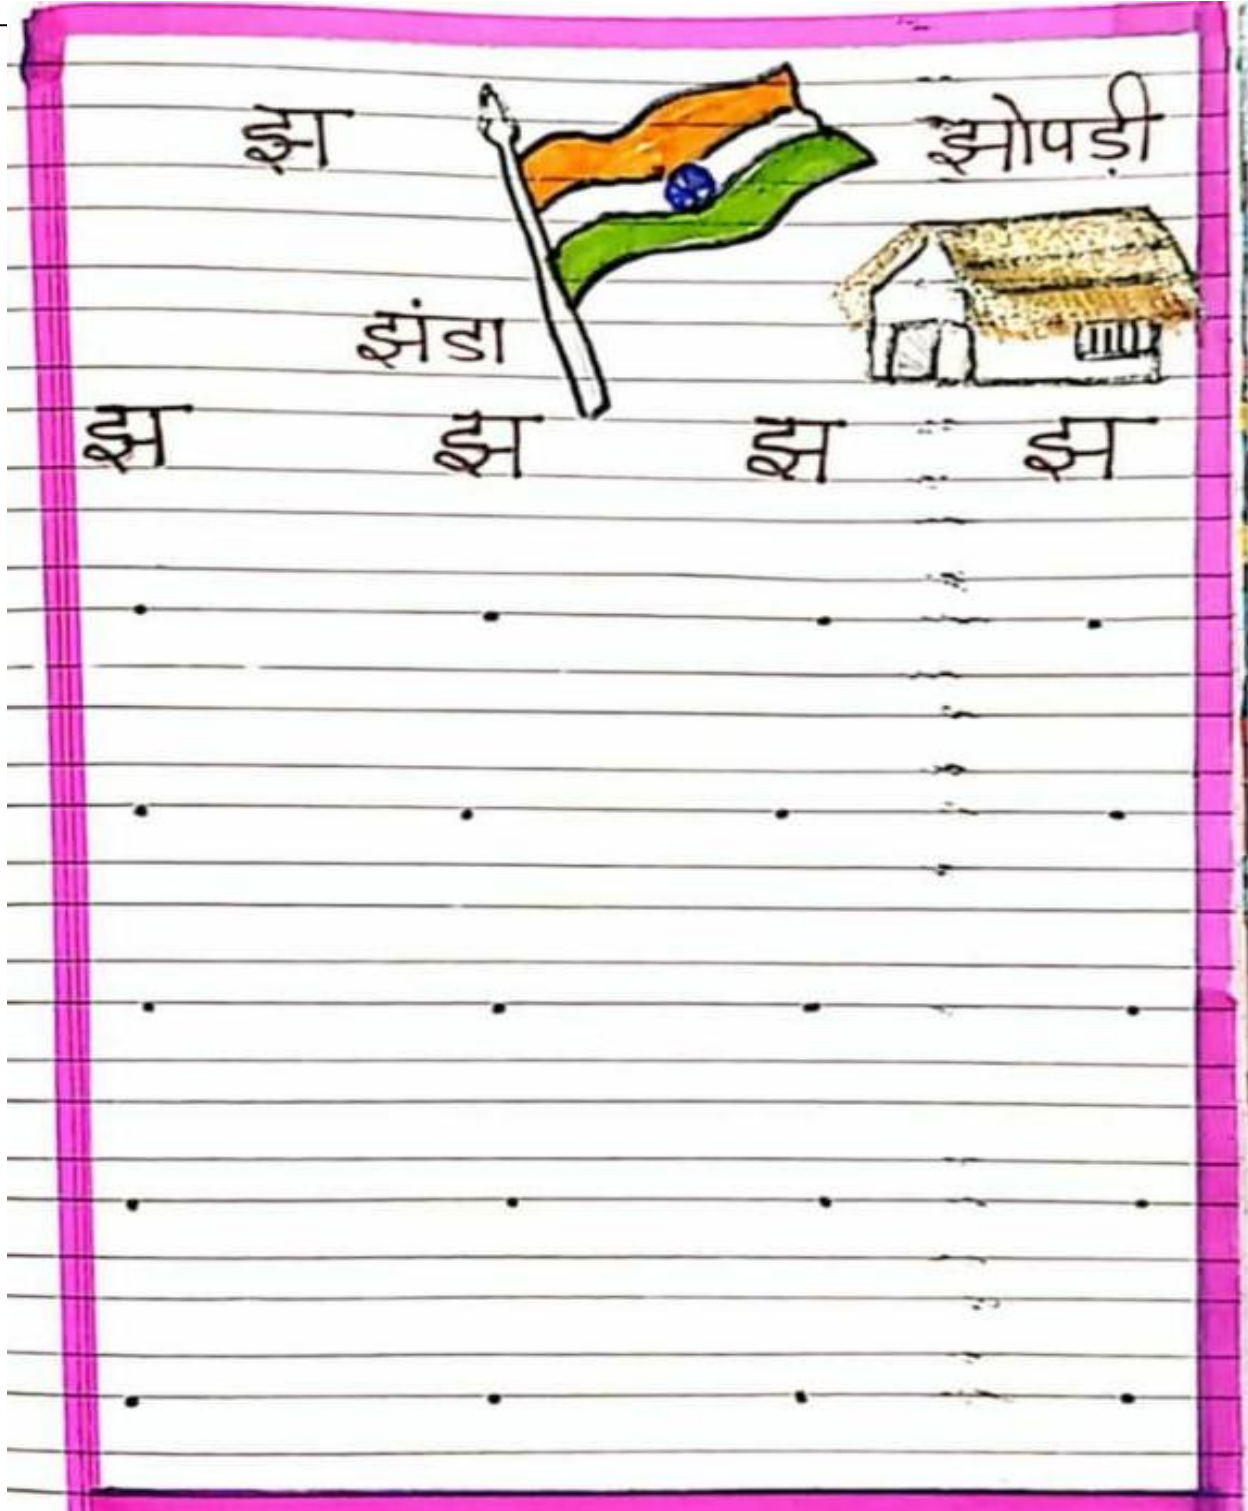 झ
झोपड़ी
झंडा
झ झ झ झ